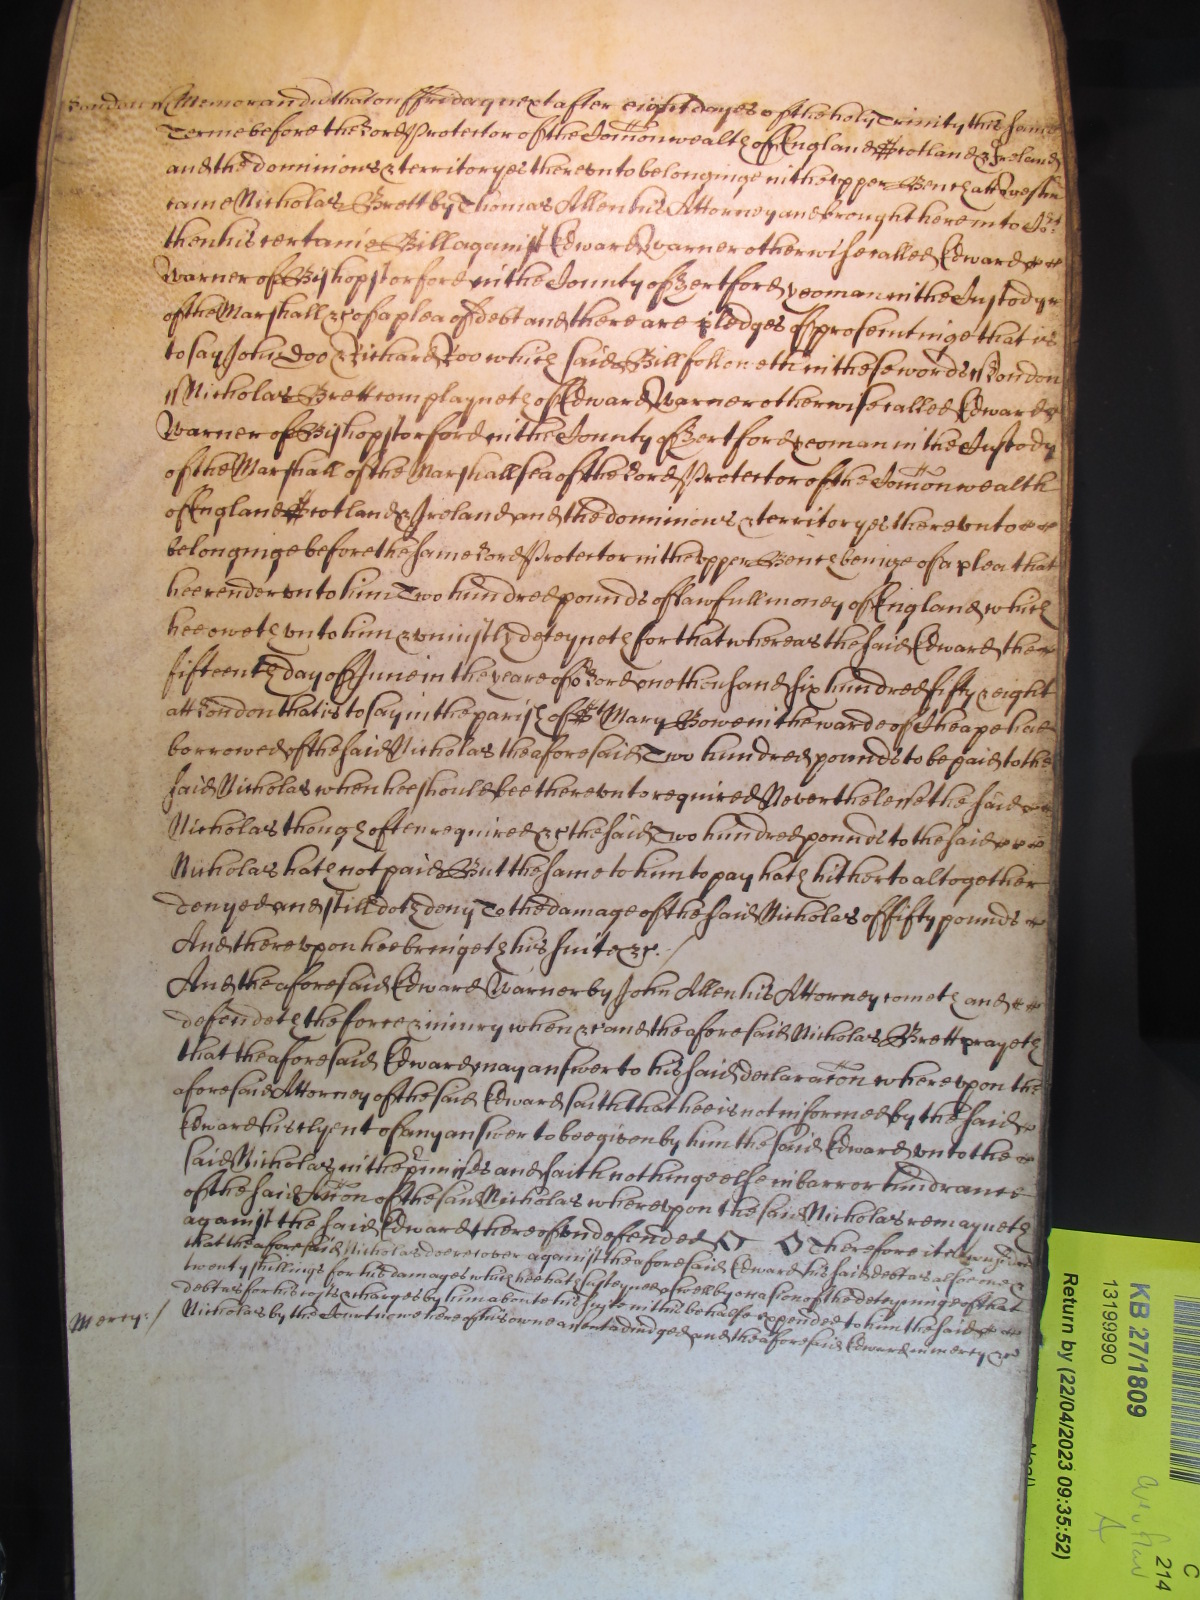 London ss Memorandũ that on ffriday next after eight dayes of the holy Trinity this same
Terme before the Lord Protector of the Com̃onwealth of England Scotland & Ireland
and the dominions & territoryes thereunto belonginge in the upper Bench att Westm̃
came Nicholas Brett by Thomas Allen his Attorney and brought here into
then his certaine Bill against Edward Warner otherwise called Edward
Warner of Bishopstorford in the County of Hertford yeoman in the Custody
of the Marshall &c of a plea of debt and there are pledges of prosecutinge that is
to say John Doo & Richard Roo which said Bill followeth in these words ss London
ss Nicholas Brett complayneth of Edward Warner otherwise called Edward
Warner of Bishopstorford in the County of Hertford yeoman in the Custody
of the Marshall of the Marshallsea of the Lord Protector of the Com̃onwealth
of England Scotland & Ireland and the dominions & territoryes thereunto
belonginge before the same Lord Protector in the upper Bench beinge of a plea that
hee render unto him Two hundred pounds of lawfull money of England which
hee oweth unto him & uniustly deteyneth for that whereas the said Edward the
fifteenth day of June in the yeare of oʳ Lord one thousand six hundred fifty & eight
att London that is to say in the parish of Sᵗ Mary Bowe in the warde of Cheape had
borrowed of the said Nicholas the aforesaid Two hundred pounds to be paid to the
said Nicholas when hee should bee thereunto required Neverthelesse the said
Nicholas though often required &c the said Two hundred pounds to the said
Nicholas hath not paid But the same to him to pay hath hitherto altogether
denyed and still doth deny To the damage of the said Nicholas of fifty pounds
And thereupon hee bringeth his suite &c.
And the aforesaid Edward Warner by John Allen his Attorney cometh and
defendeth the force & iniury when &c and the aforesaid Nicholas Brett prayeth
that the aforesaid Edward may answer to his said declarac̃on whereupon the
aforesaid Attorney of the said Edward saith that hee is not informed by the said
Edward his clyent of any answer to bee given by him the said Edward unto the
said Nicholas in the p̃misses and saith nothinge else in barr or hindrance
of the said Acc̃on of the said Nicholas whereupon the said Nicholas remayneth
against the said Edward thereof undefended Therefore it is considered
that the aforesaid Nicholas doe recover against the aforesaid Edward his said debt as alsoe one &
twenty shillings for his damages which hee hath susteyned as well by occasion of the deteyninge of that
debt as for his costs & charges by him about his suyte in this behalfe expended to him the said
Nicholas by the Court nowe here of his owne assent adiudged and the aforesaid Edward in mercy &c
Mercy:/
KB 27/1809
13199990
Return by (22/04/2023 09:35:52)
C
214
A